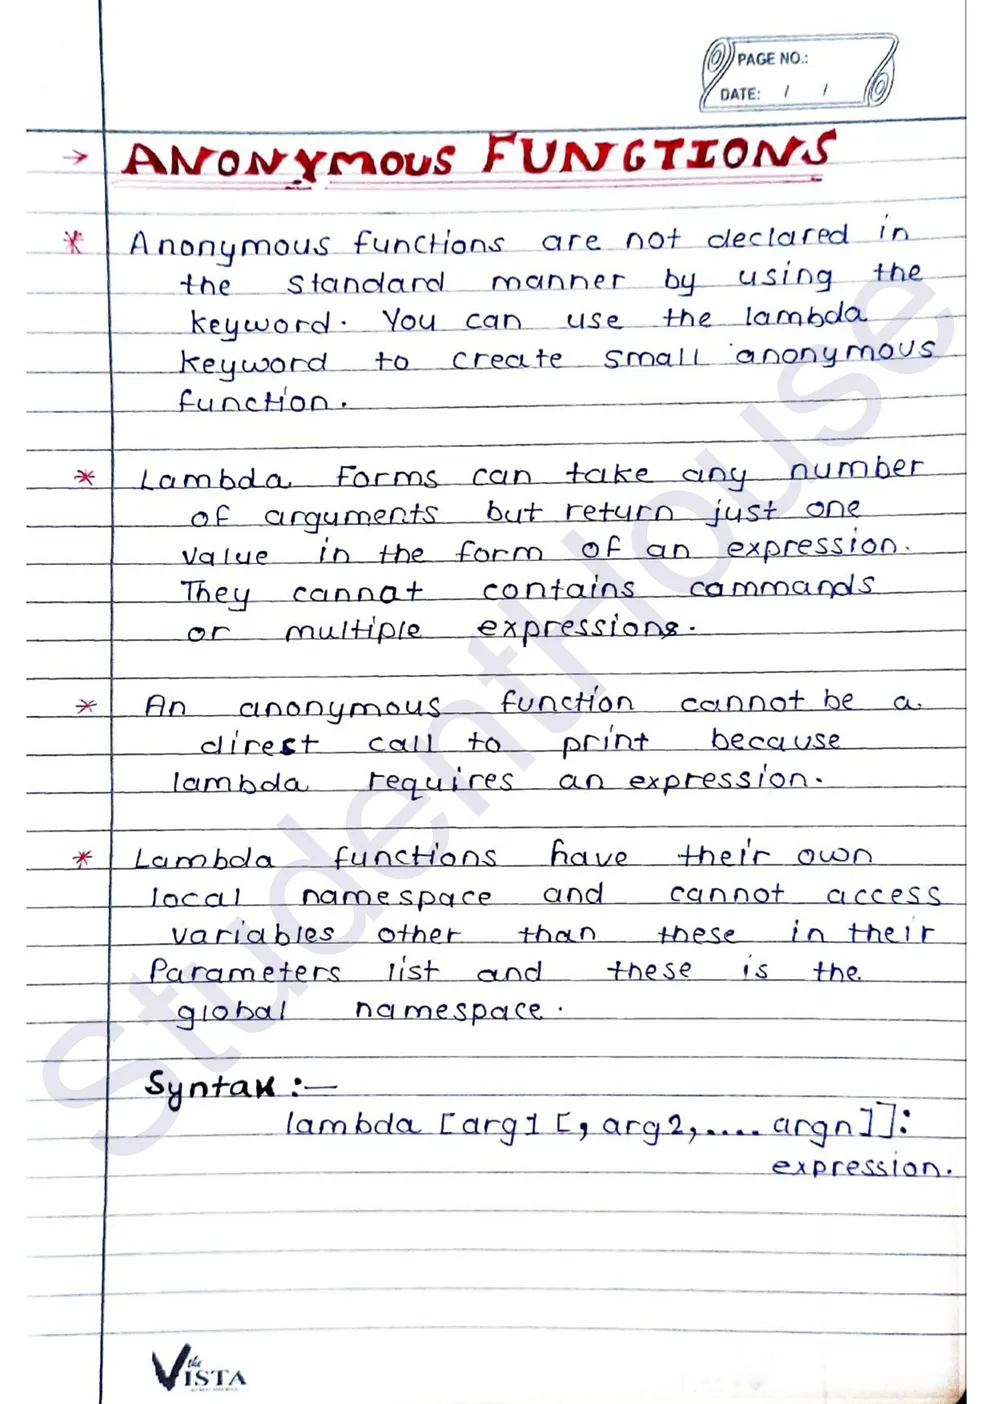 PAGE NO.:
DATE: / /
→ ANONYMOUS FUNCTIONS
* Anonymous functions are not declared in
the standard manner by using the
keyword. You can use the lambda
keyword to create small anonymous
function.
* Lambda Forms can take any number
of arguments but return just one
value in the form of an expression.
They cannot contains commands
or multiple expressions.
* An anonymous function cannot be a
direct call to print because
lambda requires an expression.
* Lambda functions have their own
local namespace and cannot access
variables other than these in their
Parameters list and these is the
global namespace.
Syntax :-
lambda [arg1 [, arg2,.... argn]]:
expression.
StudentHouse
the
VISTA